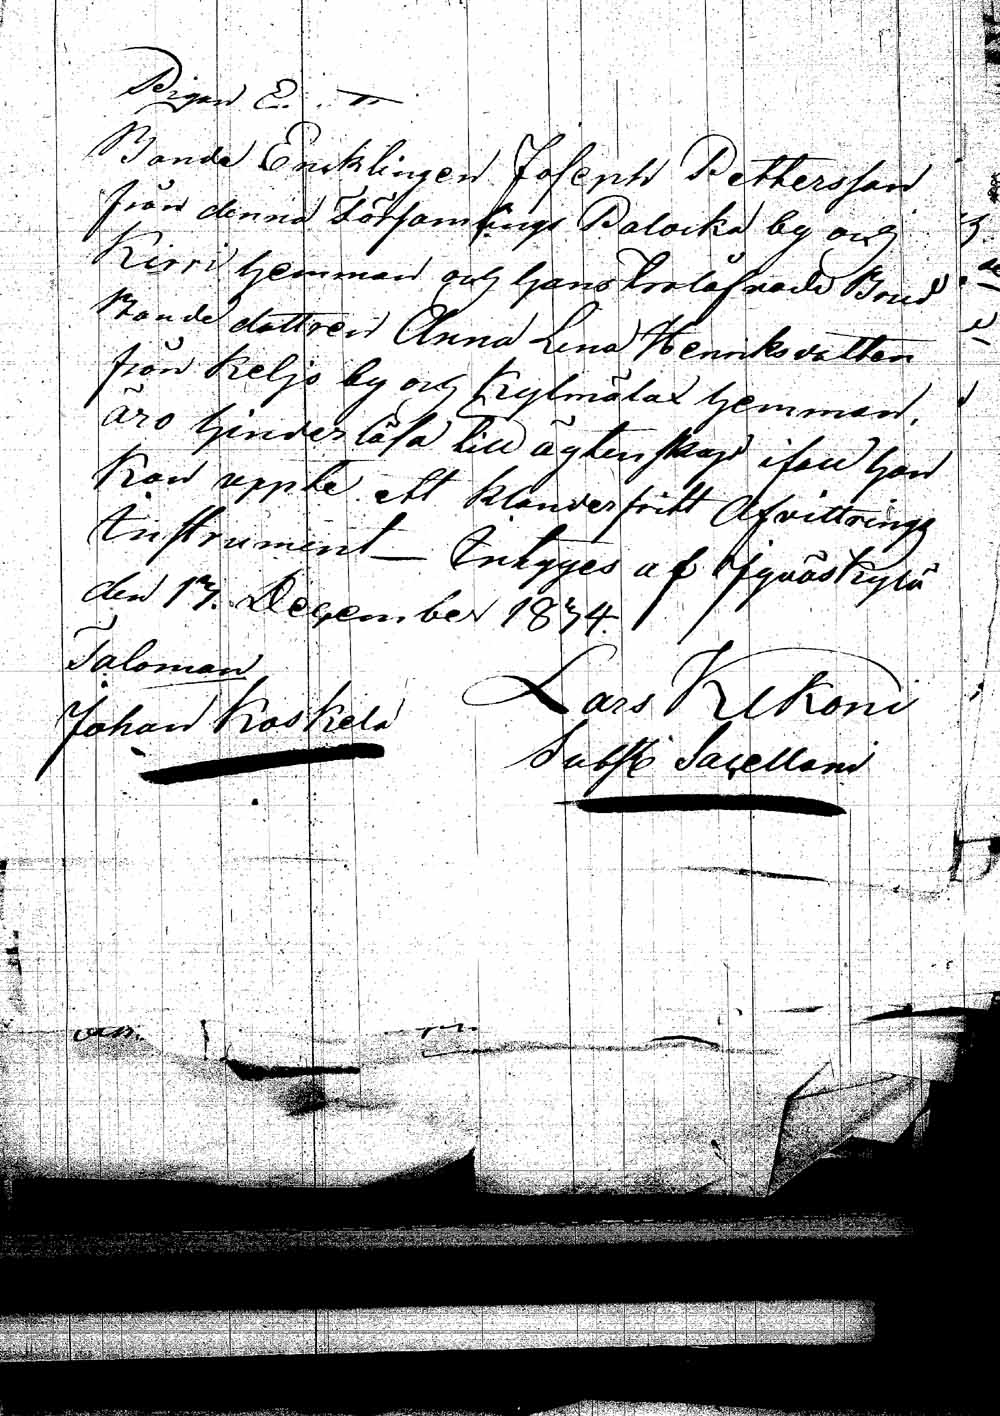 Pigan E.
Bonde Encklingen Joseph Pettersson
från denna Församlings Palocka by och
Kirri hemman och hans Trolåfvade Brud
Bonde dottren Anna Lena Henriksdotter
från Keljo by och Kylmälax hemman,
äro hinderlösa till ägtenskap ifall han
Kan uppte ett klanderfritt Afvittrings
Instrument — Intyges af Jyväskylä
den 17. December 1834.
Taloman
Johan Koskela
Lars Kekoni
Subst: Sacellani